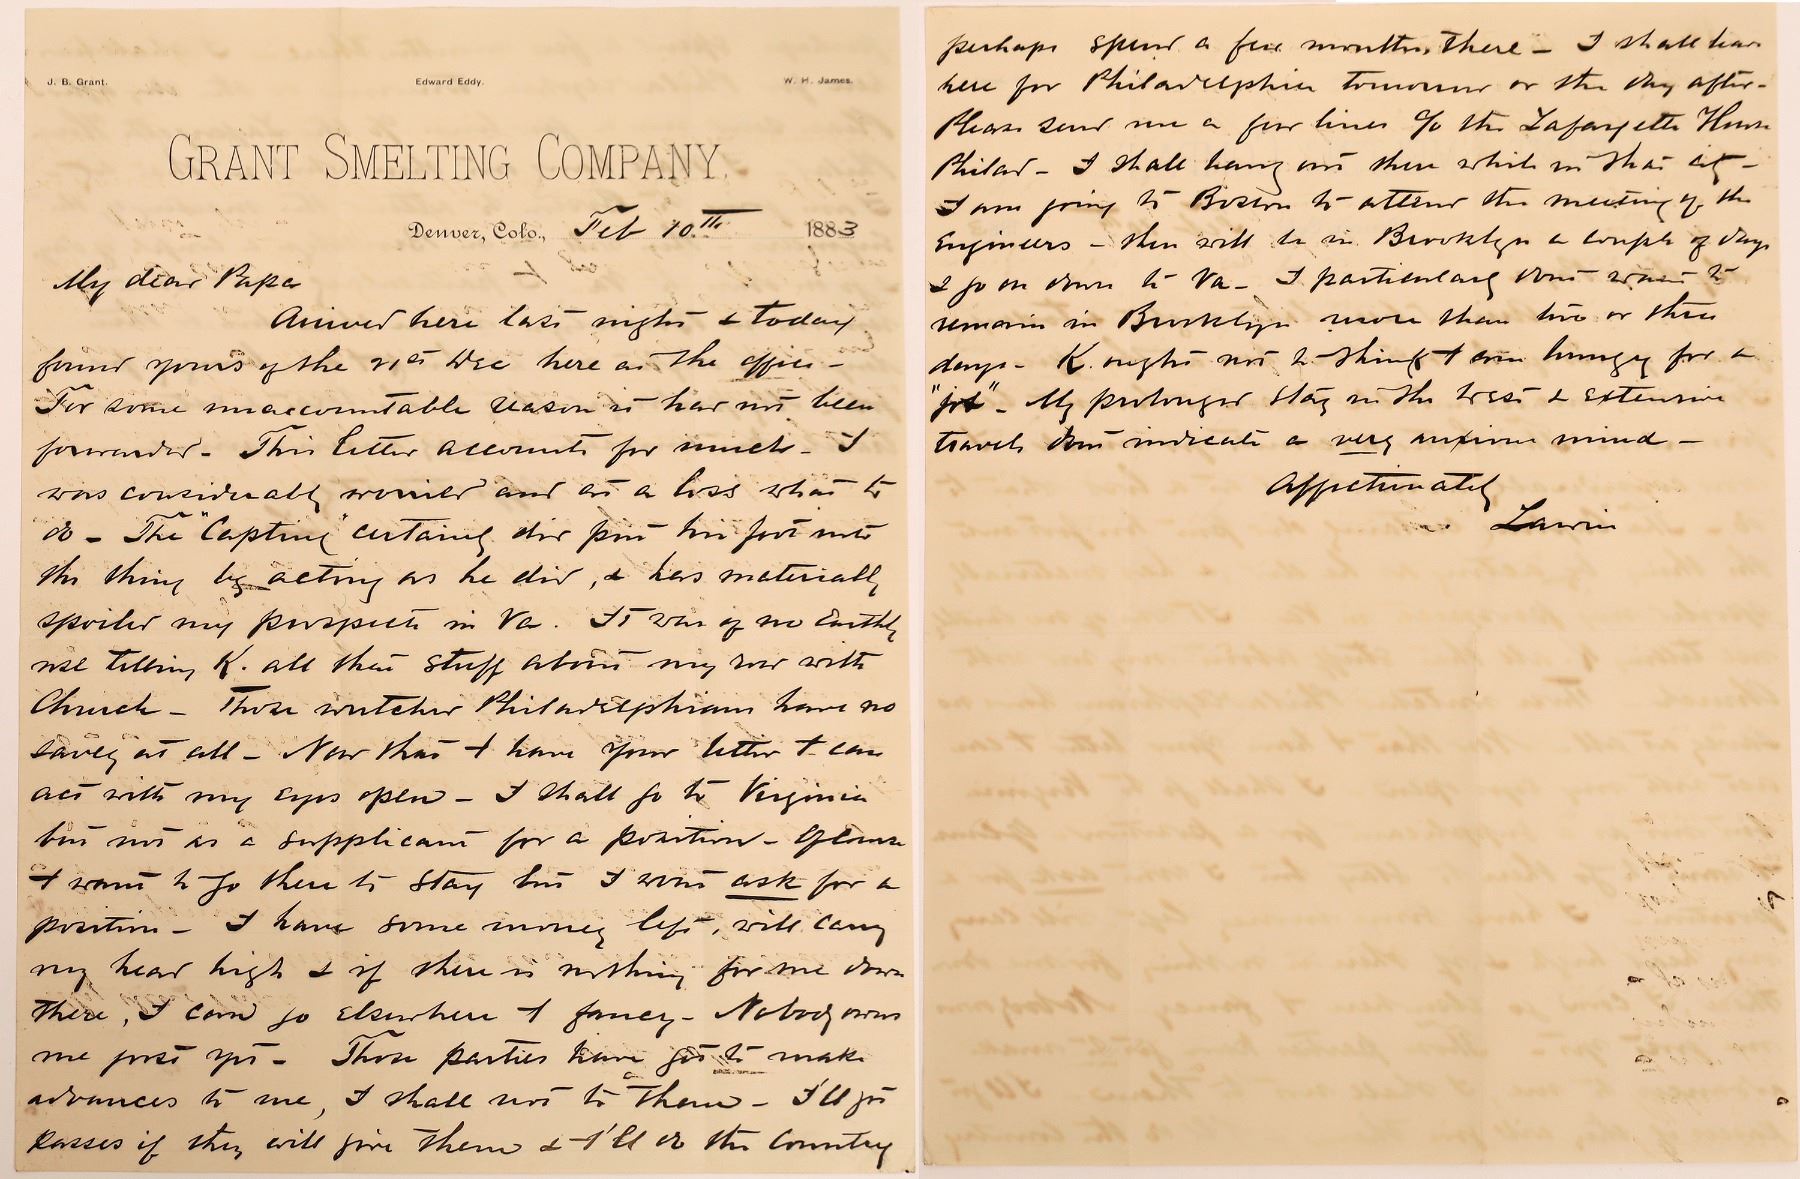 J. B. Grant. Edward Eddy. W. H. James.
GRANT SMELTING COMPANY.
Denver, Colo., Feb 10th 1883
My dear Papa
Arrived here last night & today
found yours of the 21st Dec here at the office -
For some unaccountable reason it had not been
forwarded - This letter accounts for much - I
was considerably worried and at a loss what to
do - The "Capting" certainly did put his foot into
the thing by acting as he did, & has materially
spoiled my prospects in Va. It was of no Earthly
use telling K. all that stuff about my row with
Church - Those wretched Philadelphians have no
savey at all - Now that I have your letter I can
act with my eyes open - I shall go to Virginia
but not as a supplicant for a position - Of course
I want to go there to stay but I wont ask for a
position - I have some money left, will carry
my head high & if there is nothing for me down
there, I can go elsewhere I fancy - Nobody owns
me just yet - Those parties have got to make
advances to me, I shall not to them - I'll get
passes if they will give them & I'll do the Country
perhaps spend a few months there - I shall leave
here for Philadelphia tomorrow or the day after -
Please send me a few lines c/o the Lafayette House
Philad - I shall hang out there while in that city -
I am going to Boston to attend the meeting of the
Engineers - then will be in Brooklyn a couple of days
& go on down to Va - I particularly dont want to
remain in Brooklyn more than two or three
days - K. ought not to think I am hungry for a
"job" - My prolonged stay in the west & extensive
travels dont indicate a very anxious mind -
Affectionately
Lawrie